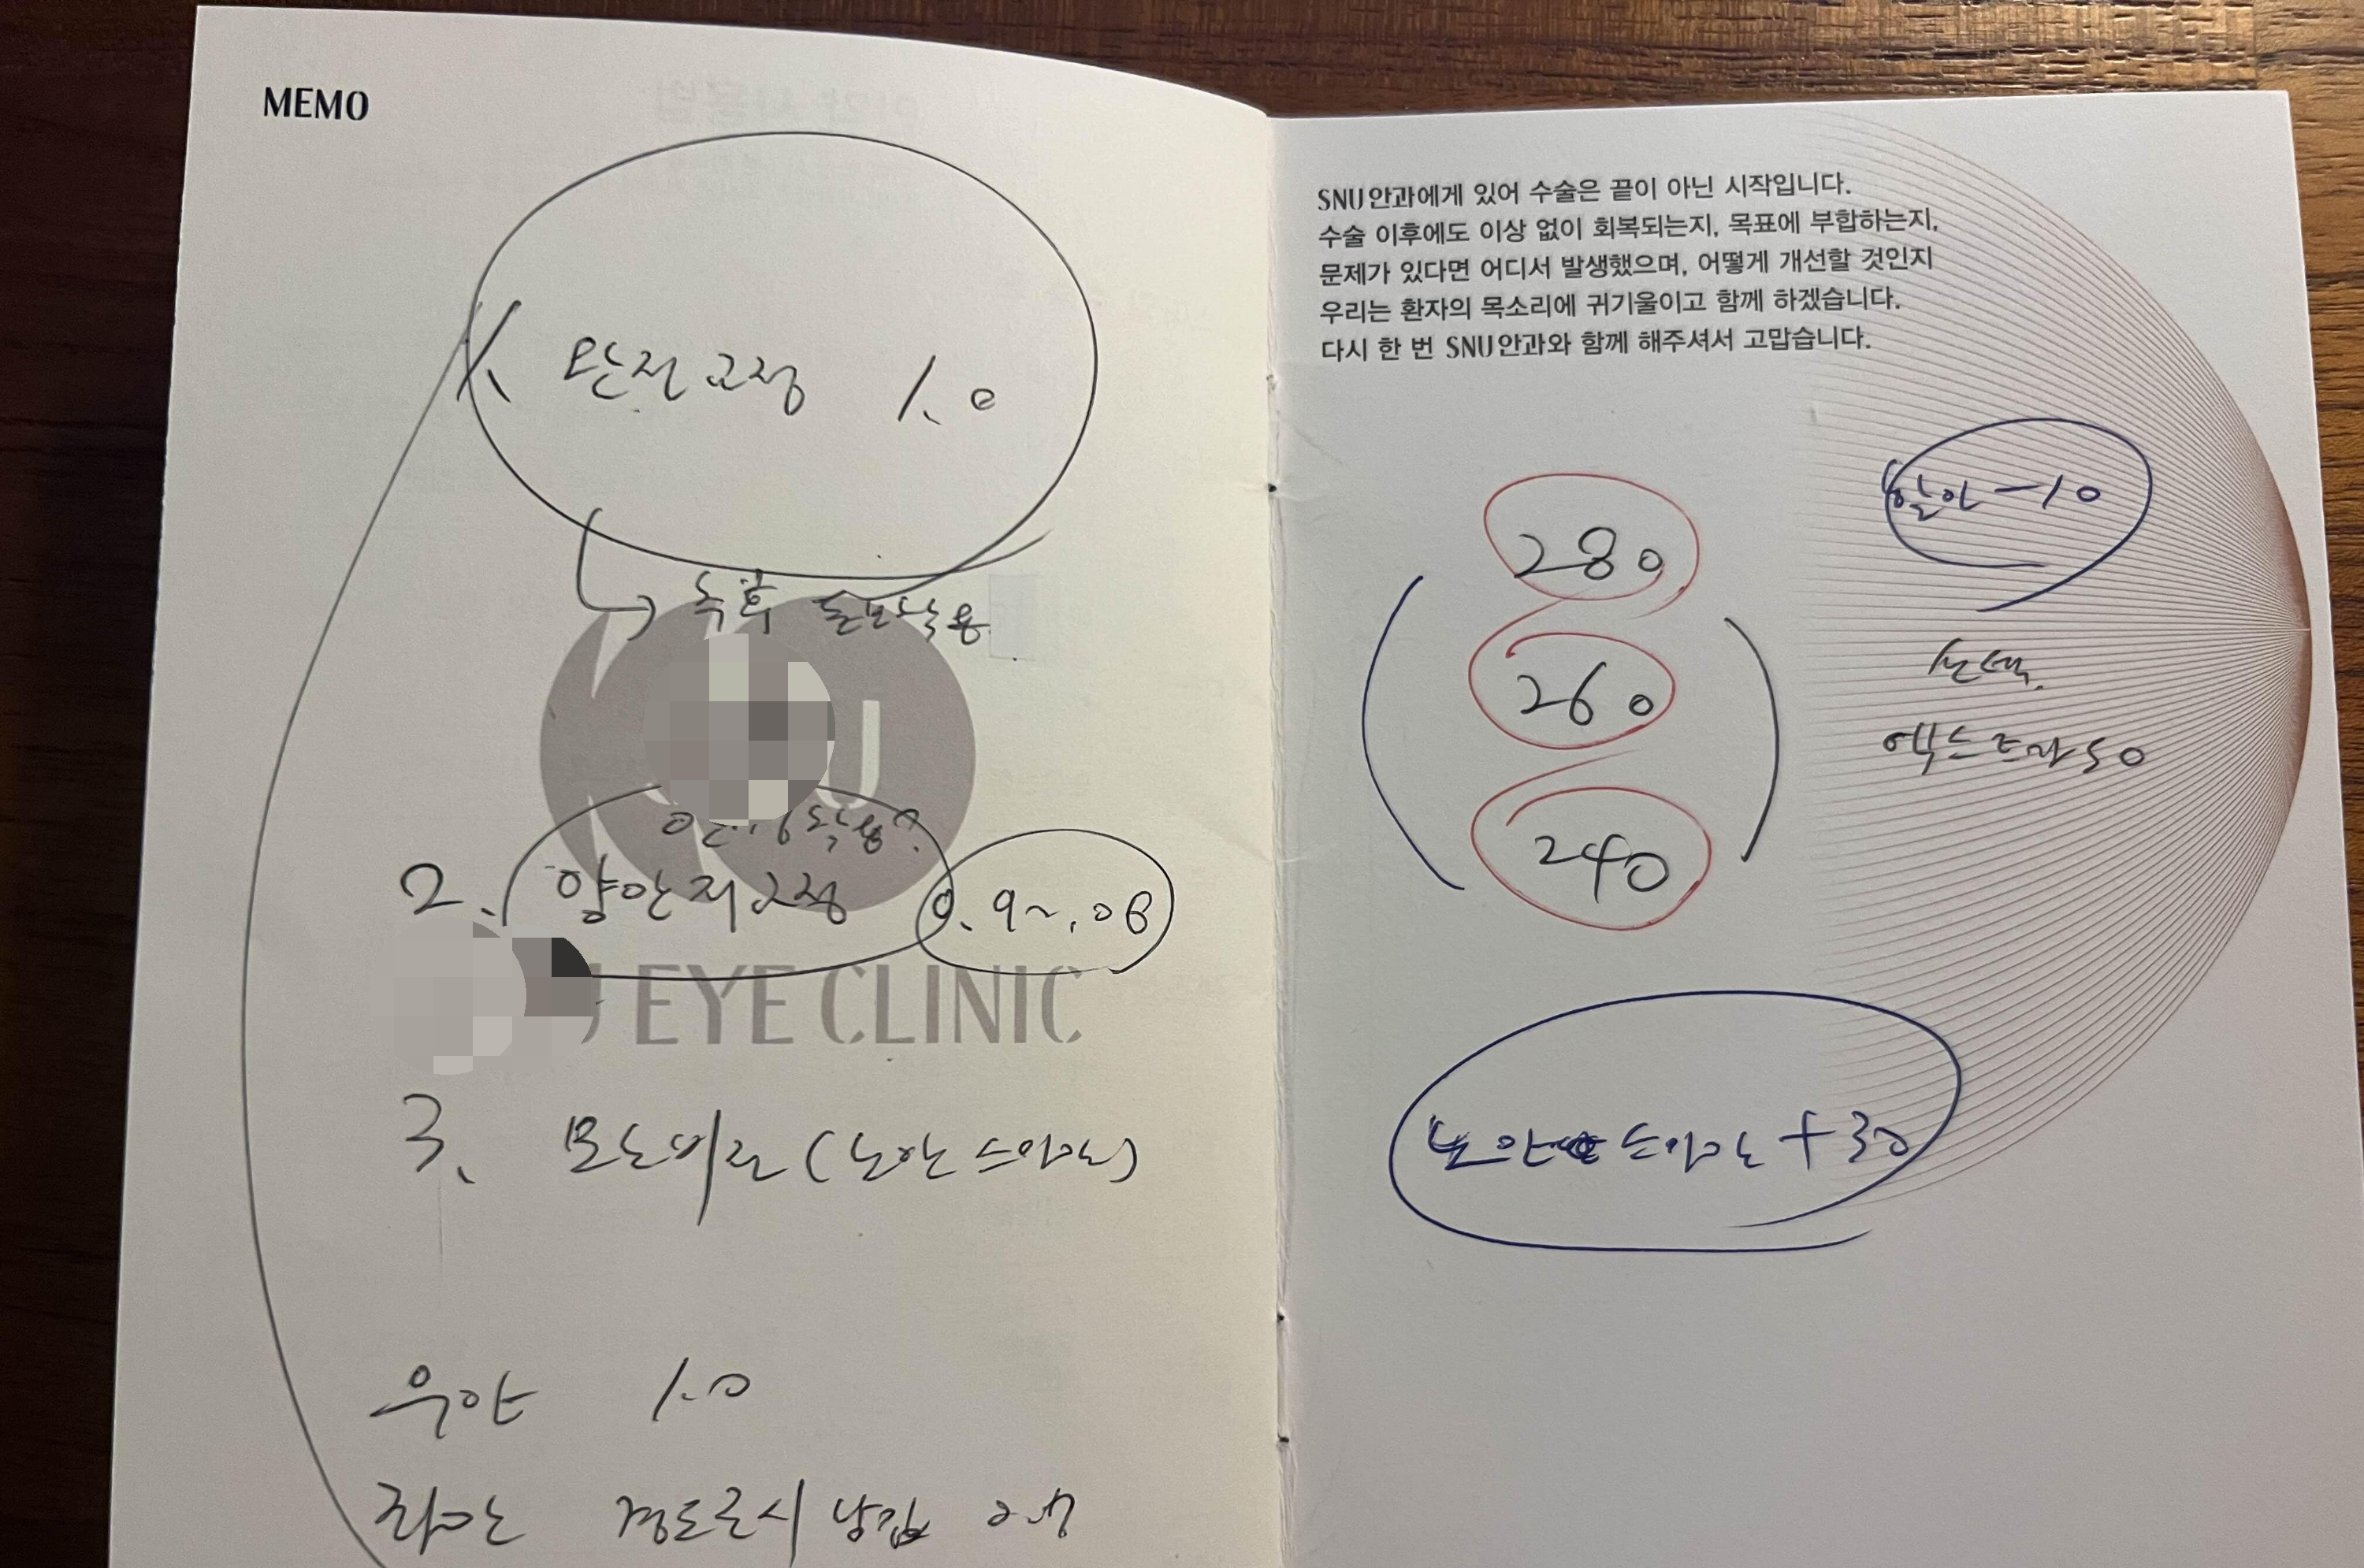 MEMO
1. 완전교정 1.0
→ 추후 돋보착용
착용?
2. 양안저교정 0.9~.08
U EYE CLINIC
3. 모노비전(노안스마일)
우안 1.0
좌안 경도근시 남김
SNU안과에게 있어 수술은 끝이 아닌 시작입니다.
수술 이후에도 이상 없이 회복되는지, 목표에 부합하는지,
문제가 있다면 어디서 발생했으며, 어떻게 개선할 것인지
우리는 환자의 목소리에 귀기울이고 함께 하겠습니다.
다시 한 번 SNU안과와 함께 해주셔서 고맙습니다.
할인 -10
280
선택.
260
엑스트라 50
240
노안 스마일 +30